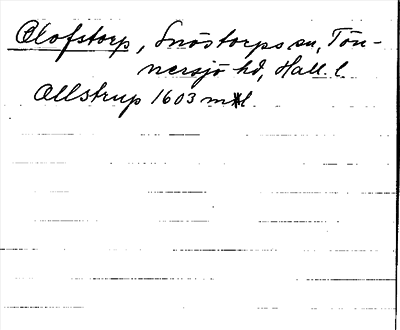 Olofstorp, Snöstorps sn, Tön-
nersjö hd, Hall. l.
Allstrup 1603 mxl.